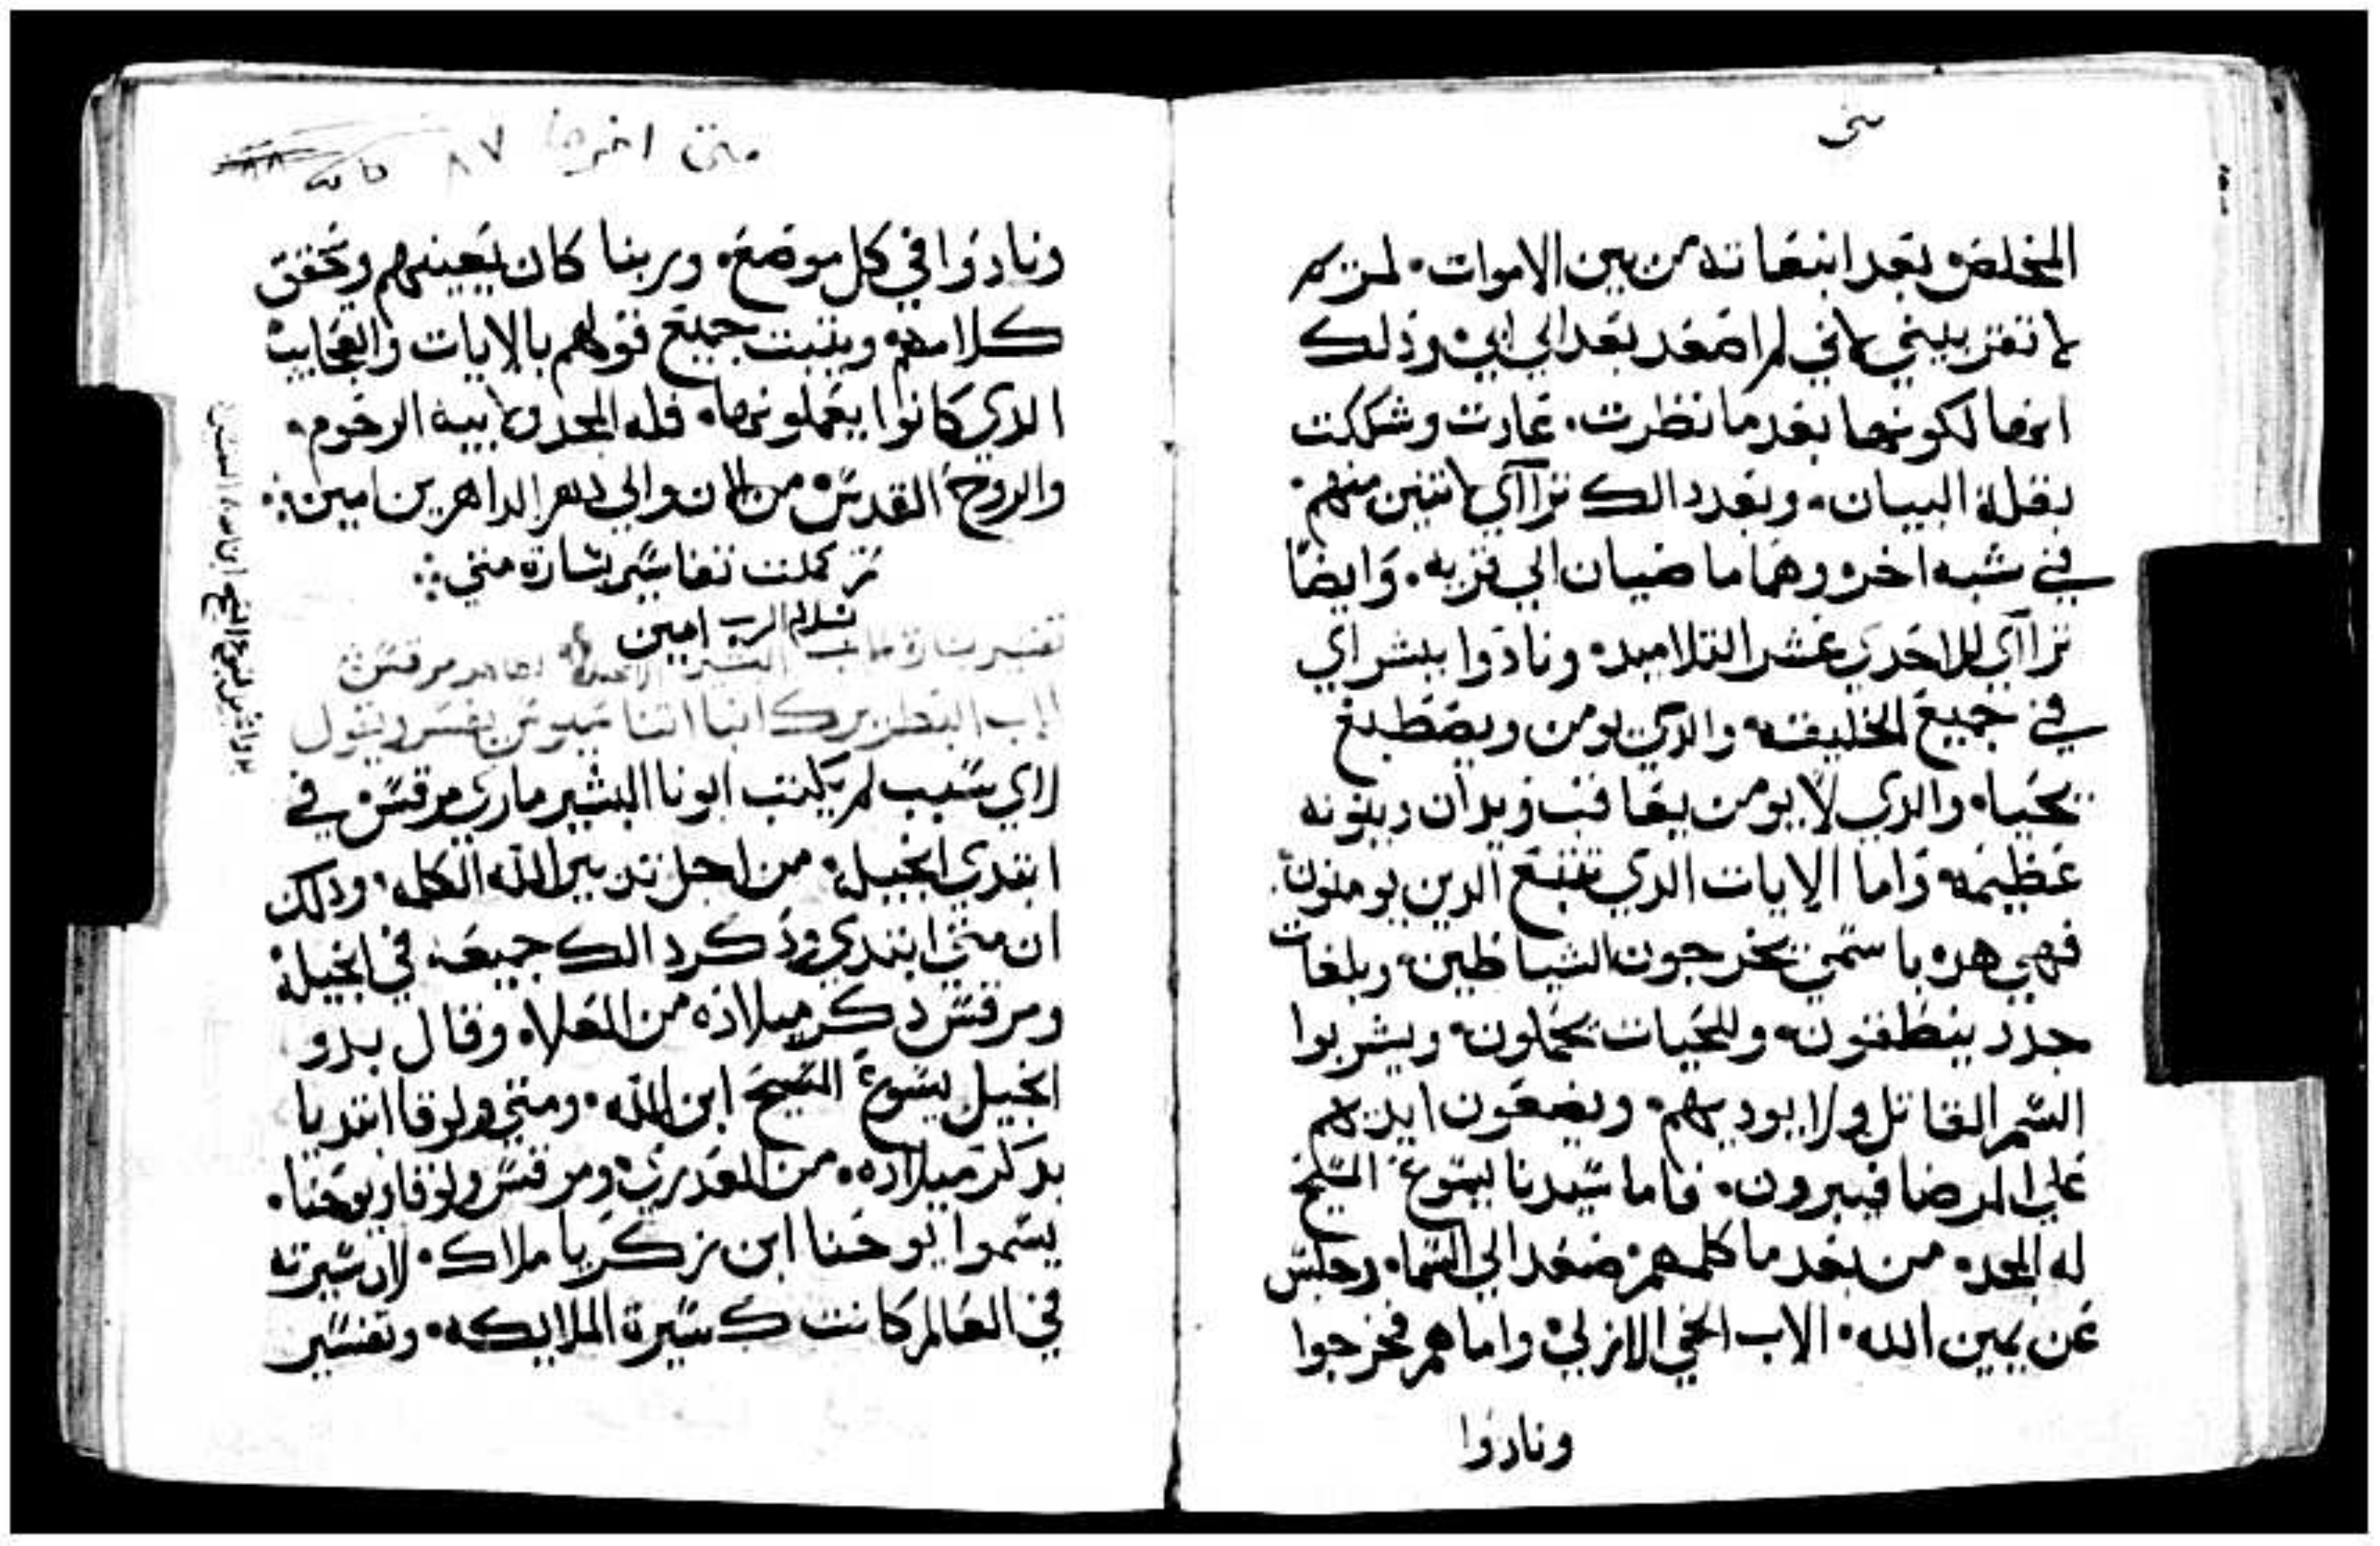 متى
المخلص بعد انبعاثه من بين الاموات لمريم
لا تقتربيني لاني لم اصعد بعد الي ابي وذلك
انها لكونها بعد ما نظرت عادت وشككت
بقلة البيان وبعد دالك ترااي لاتنين منهم
في شبه اخر وهما ماضيان الي قريه وايضا
ترااي للاحدي عشر التلاميد ونادوا ببشراي
في جميع الخليقه والدي يومن ويصطبغ
يحيا والدي لا يومن يعاقب ويدان دينونه
عظيمه واما الايات الدي تتبع الدين يومنون
فهي هده باسمي يخرجون الشياطين وبلغات
جدد ينطقون وللحيات يحملون ويشربوا
السم القاتل ولا يوديهم ويضعون ايديهم
علي المرضا فيبرون فاما سيدنا يسوع المسيح
له المجد من بعد ما كلمهم صعد الي السما وجلس
عن يمين الله الاب الحي الازلي واما هم فخرجوا
ونادوا
متى اخرها ٨٧
ونادوا في كل موضع وربنا كان يعينهم ويحقق
كلامهم ويتبت جميع قولهم بالايات والعجايب
الدي كانوا يعملونها فله المجد ولابيه الرحوم
والروح القدس من الان والي دهر الداهرين امين
تم كملت تفاسير بشارة متي
بسلام الرب امين
تفسير بشارة مرقس
الاب البطريرك انبا اتناسيوس يفسر ويقول
لاي سبب لم يكتب ابونا البشير ماري مرقس في
ابتدي انجيله من اجل تدبير الله الكلمه ودلك
ان متي ابتدي ودكر دالك جميعه في انجيله
ومرقس دكر ميلاده من العلاه وقال بدو
انجيل يسوع المسيح ابن الله ومتي ولوقا ابتديا
بدكر ميلاده من العدري ومرقس ولوقا ويوحنا
يسموا يوحنا ابن زكريا ملاك لان سيرته
في العالم كانت كسيرة الملايكه وتفسير